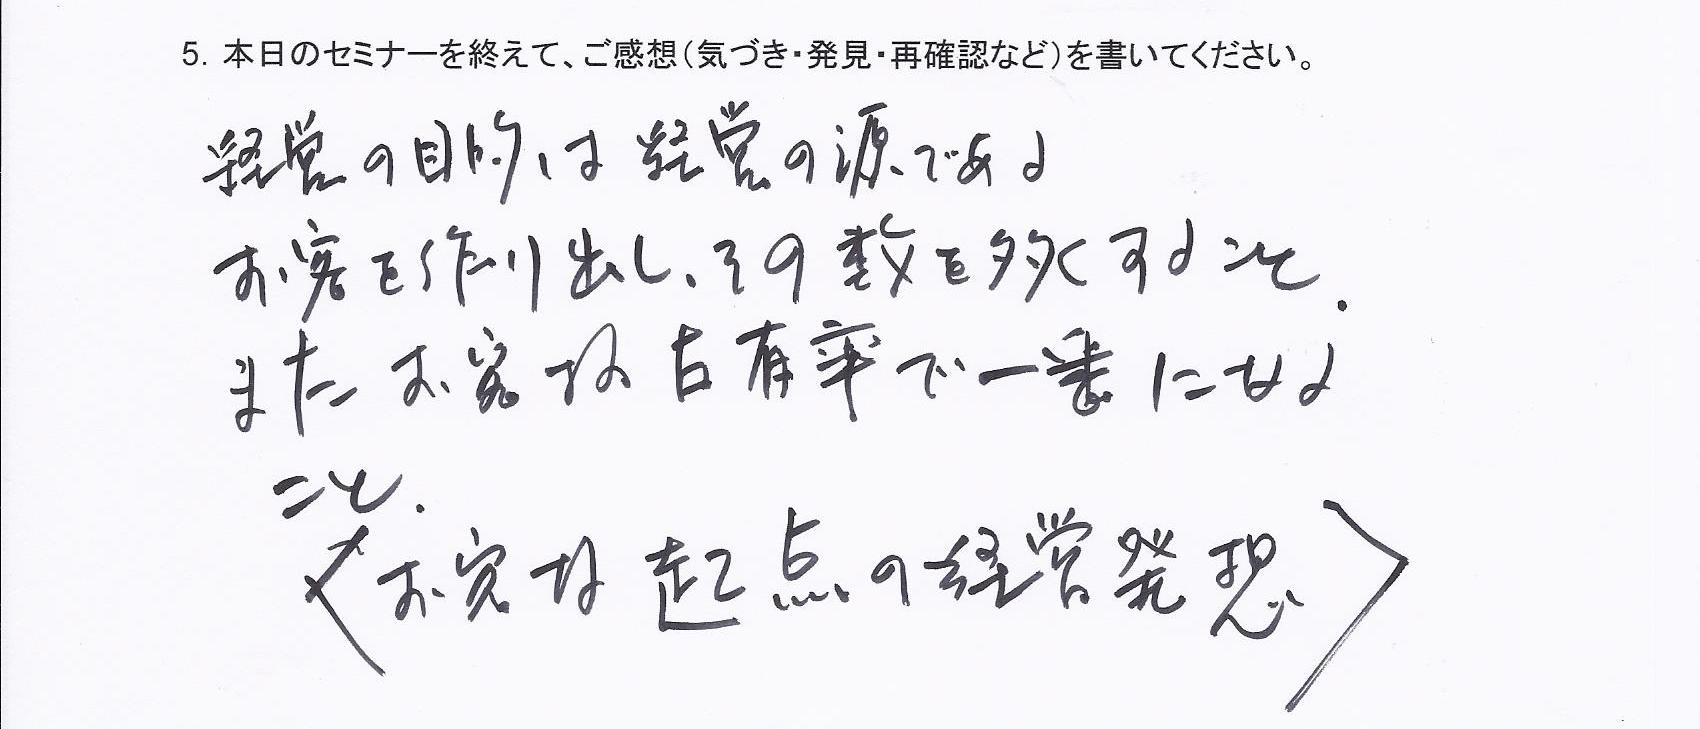 5. 本日のセミナーを終えて、ご感想(気づき・発見・再確認など)を書いてください。
経営の目的は経営の源である
お客を作り出し、その数を多くすること.
またお客様占有率で一番になる
こと.
〈お客様起点の経営発想〉